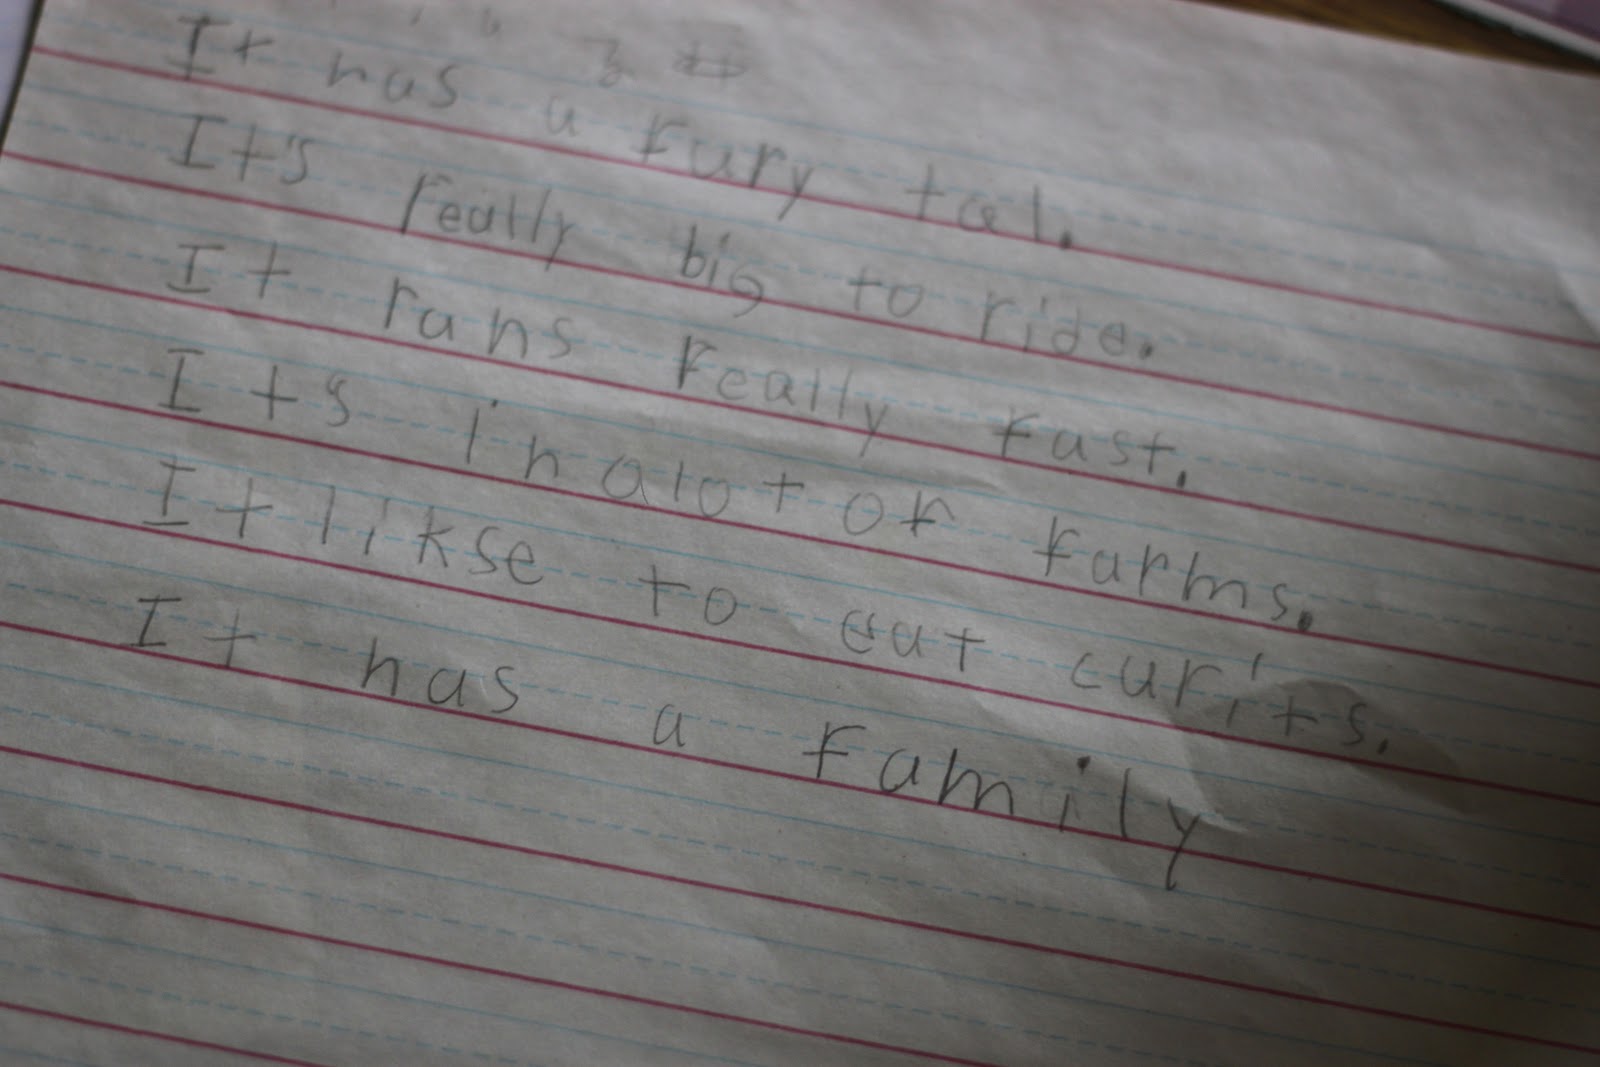 It has a fury tal.
It's really big to ride.
It rans really fast.
Its in alot of farms.
It likse to eat curits.
It has a family